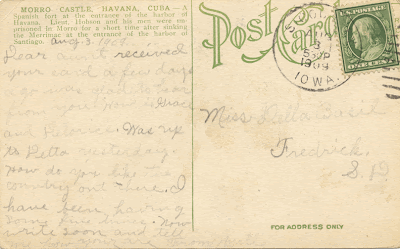 MORRO CASTLE, HAVANA, CUBA—A
Spanish fort at the entrance of the harbor of
Havana. Lieut. Hobson and his men were im-
prisoned in Morro for a short time after sinking
the Merrimac at the entrance of the harbor of
Santiago.
Aug. 3. 1909.
Dear I received
your card a few days
ago was glad to hear
from you. How is Grace
and Was up
to yesterday.
How do you like the
country out there. I
have been having
some time. Now
write soon and tell
me how you are
Post Card
IOWA
1909
U.S. POSTAGE
ONE CENT
Miss Basil
Fredrick.
S. D
FOR ADDRESS ONLY